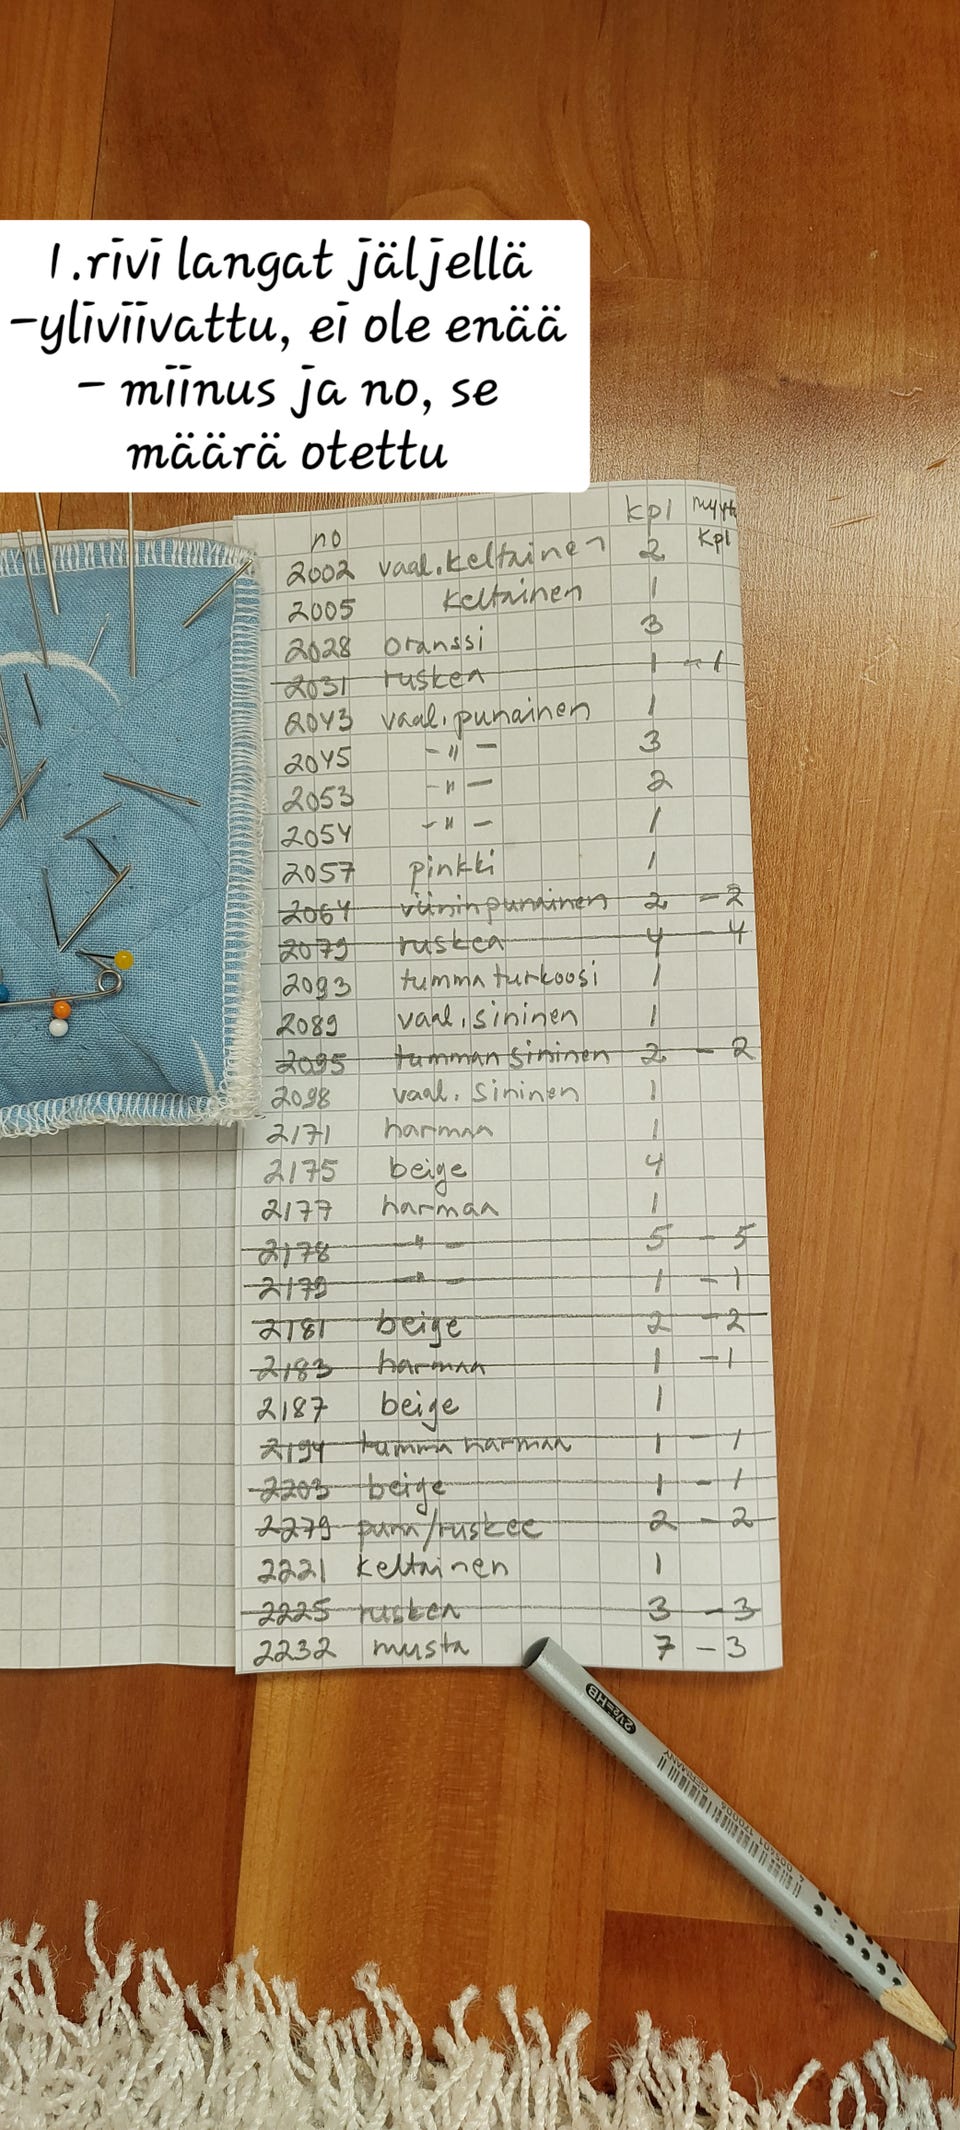 1.rivi langat jäljellä
-yliviivattu, ei ole enää
- miinus ja no, se
määrä otettu
no kpl myyty kpl
2002 vaal.keltainen 2
2005 keltainen 1
2028 oranssi 3
2031 ruskea 1 -1
2043 vaal.punainen 1
2045 -"- 3
2053 -"- 2
2054 -"- 1
2057 pinkki 1
2064 viininpunainen 2 -2
2079 ruskea 4 -4
2093 tumma turkoosi 1
2089 vaal.sininen 1
2095 tumman sininen 2 -2
2098 vaal. sininen 1
2171 harmaa 1
2175 beige 4
2177 harmaa 1
2178 -"- 5 -5
2179 -"- 1 -1
2181 beige 2 -2
2183 harmaa 1 -1
2187 beige 1
2194 tumma harmaa 1 -1
2203 beige 1 -1
2279 puna/ruskee 2 -2
2221 keltainen 1
2225 ruskea 3 -3
2232 musta 7 -3
2½=HB
GERMANY